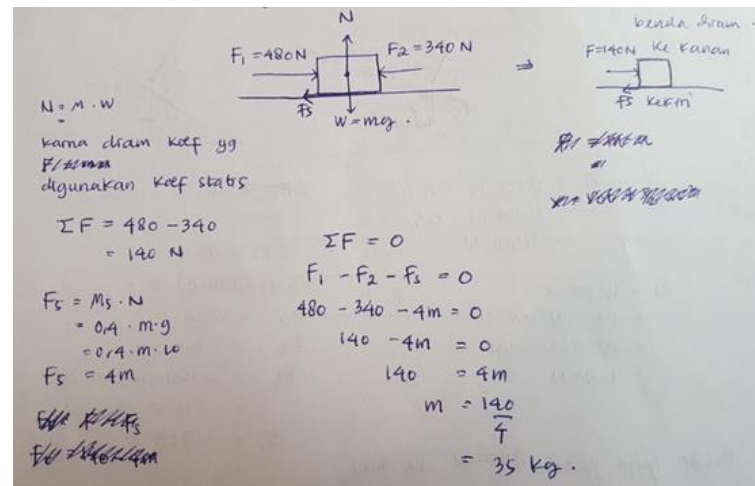 N
F₁ = 480N
F2 = 340 N
fs
W = mg.
⇒
benda diam
F=140N ke kanan
fs ke kiri
N = M . W
karna diam koef yg
digunakan koef statis
ΣF = 480 - 340
= 140 N
Fs = Ms . N
= 0,4 . m.g
= 0,4 . m. 10
Fs = 4m
ΣF = 0
F₁ - F₂ - Fs = 0
480 - 340 - 4m = 0
140 - 4m = 0
140 = 4m
m = 140
4
= 35 kg.